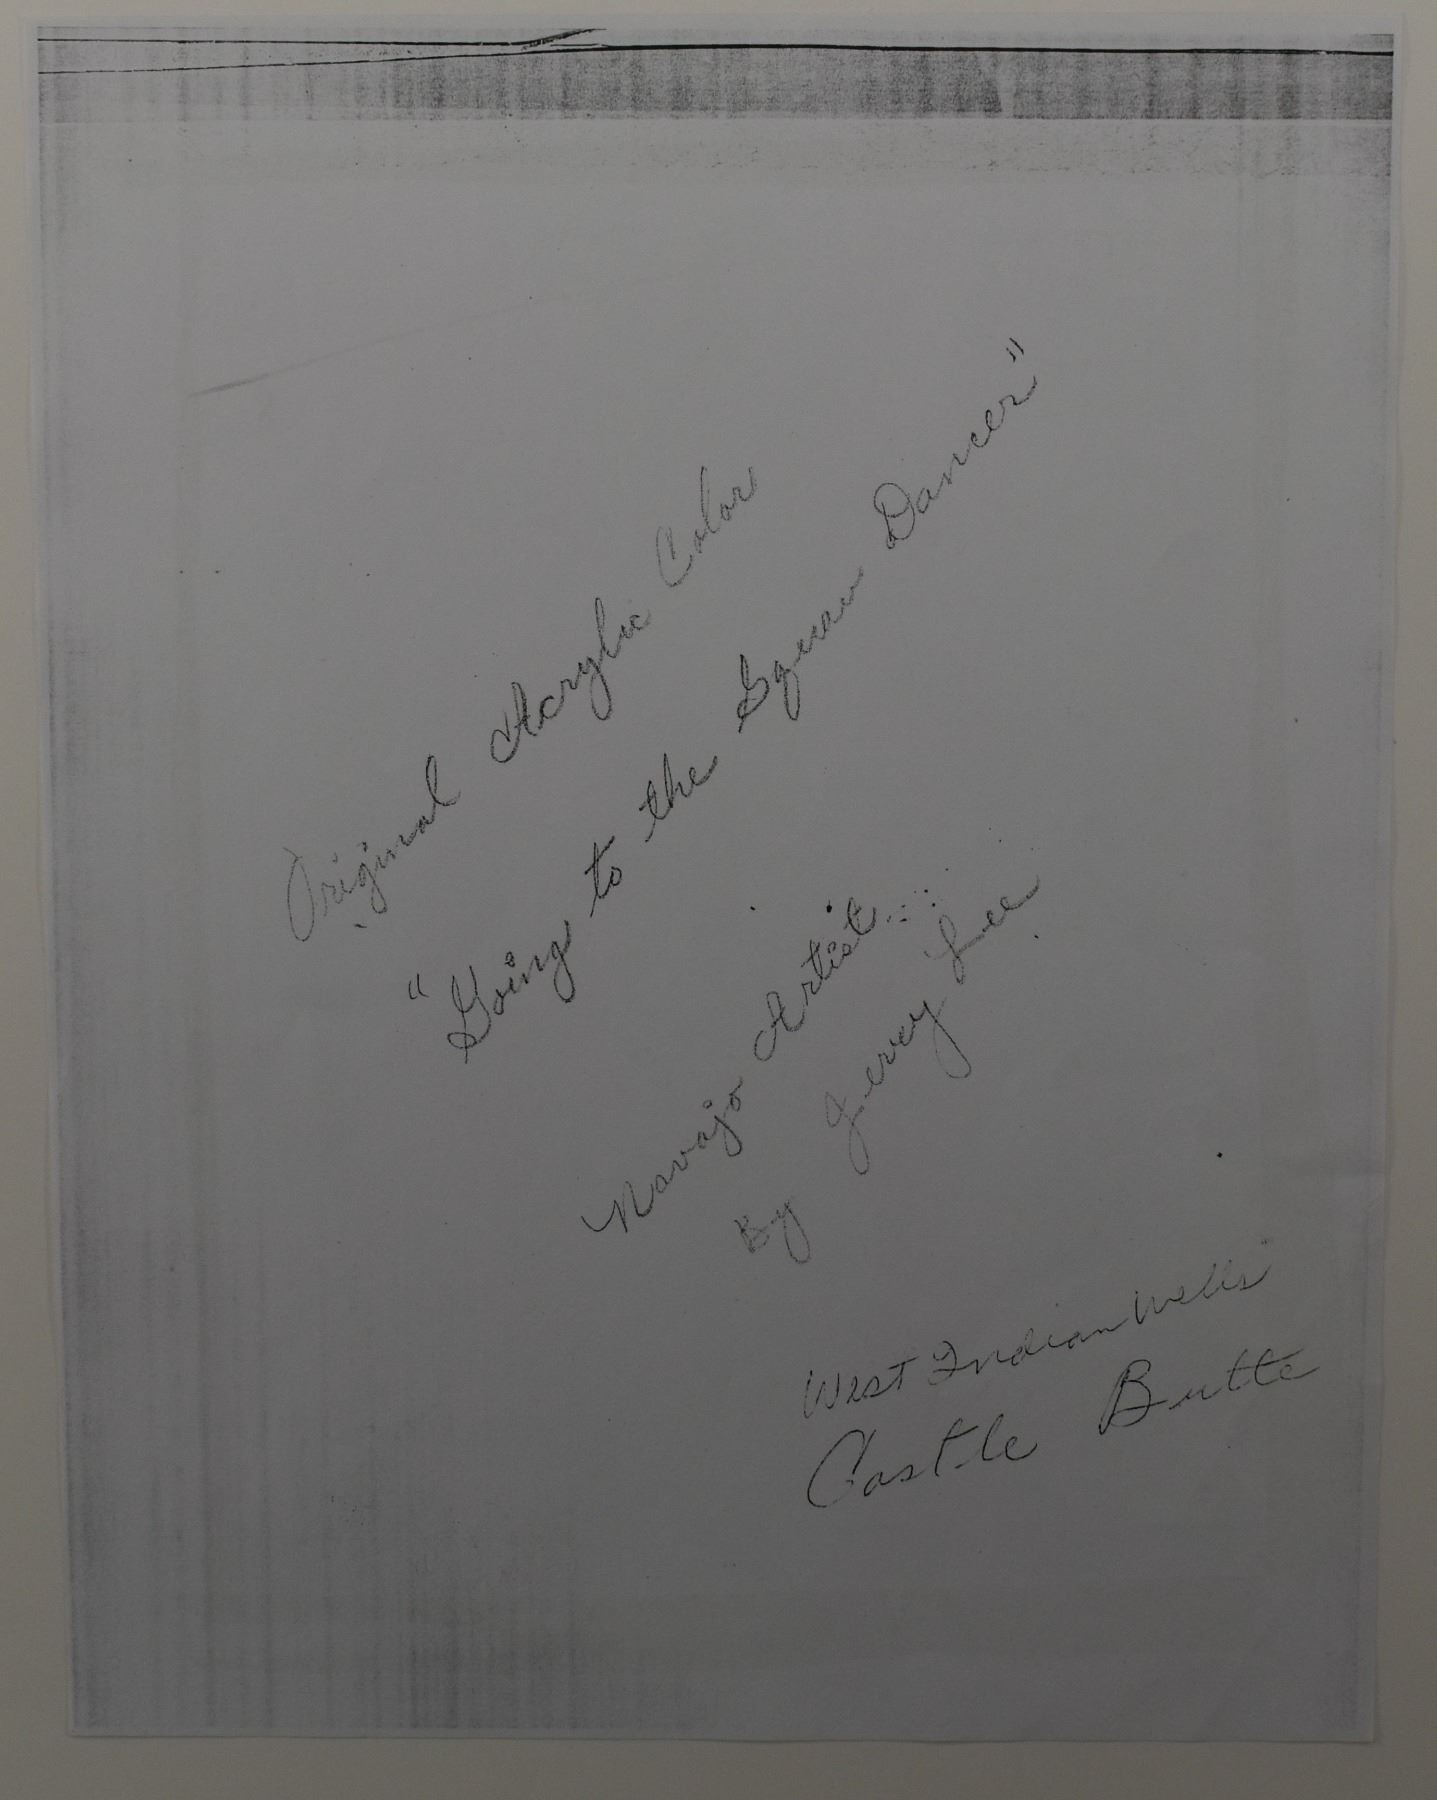 Original Acrylic Color
"Going to the Squaw Dancer"
Navajo Artist...
By Jerry Lee
West Indian Wells
Castle Butte